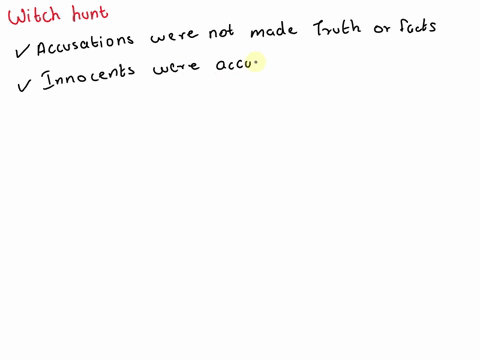 Witch hunt
✓ Accusations were not made Truth or facts
✓ Innocents were accu